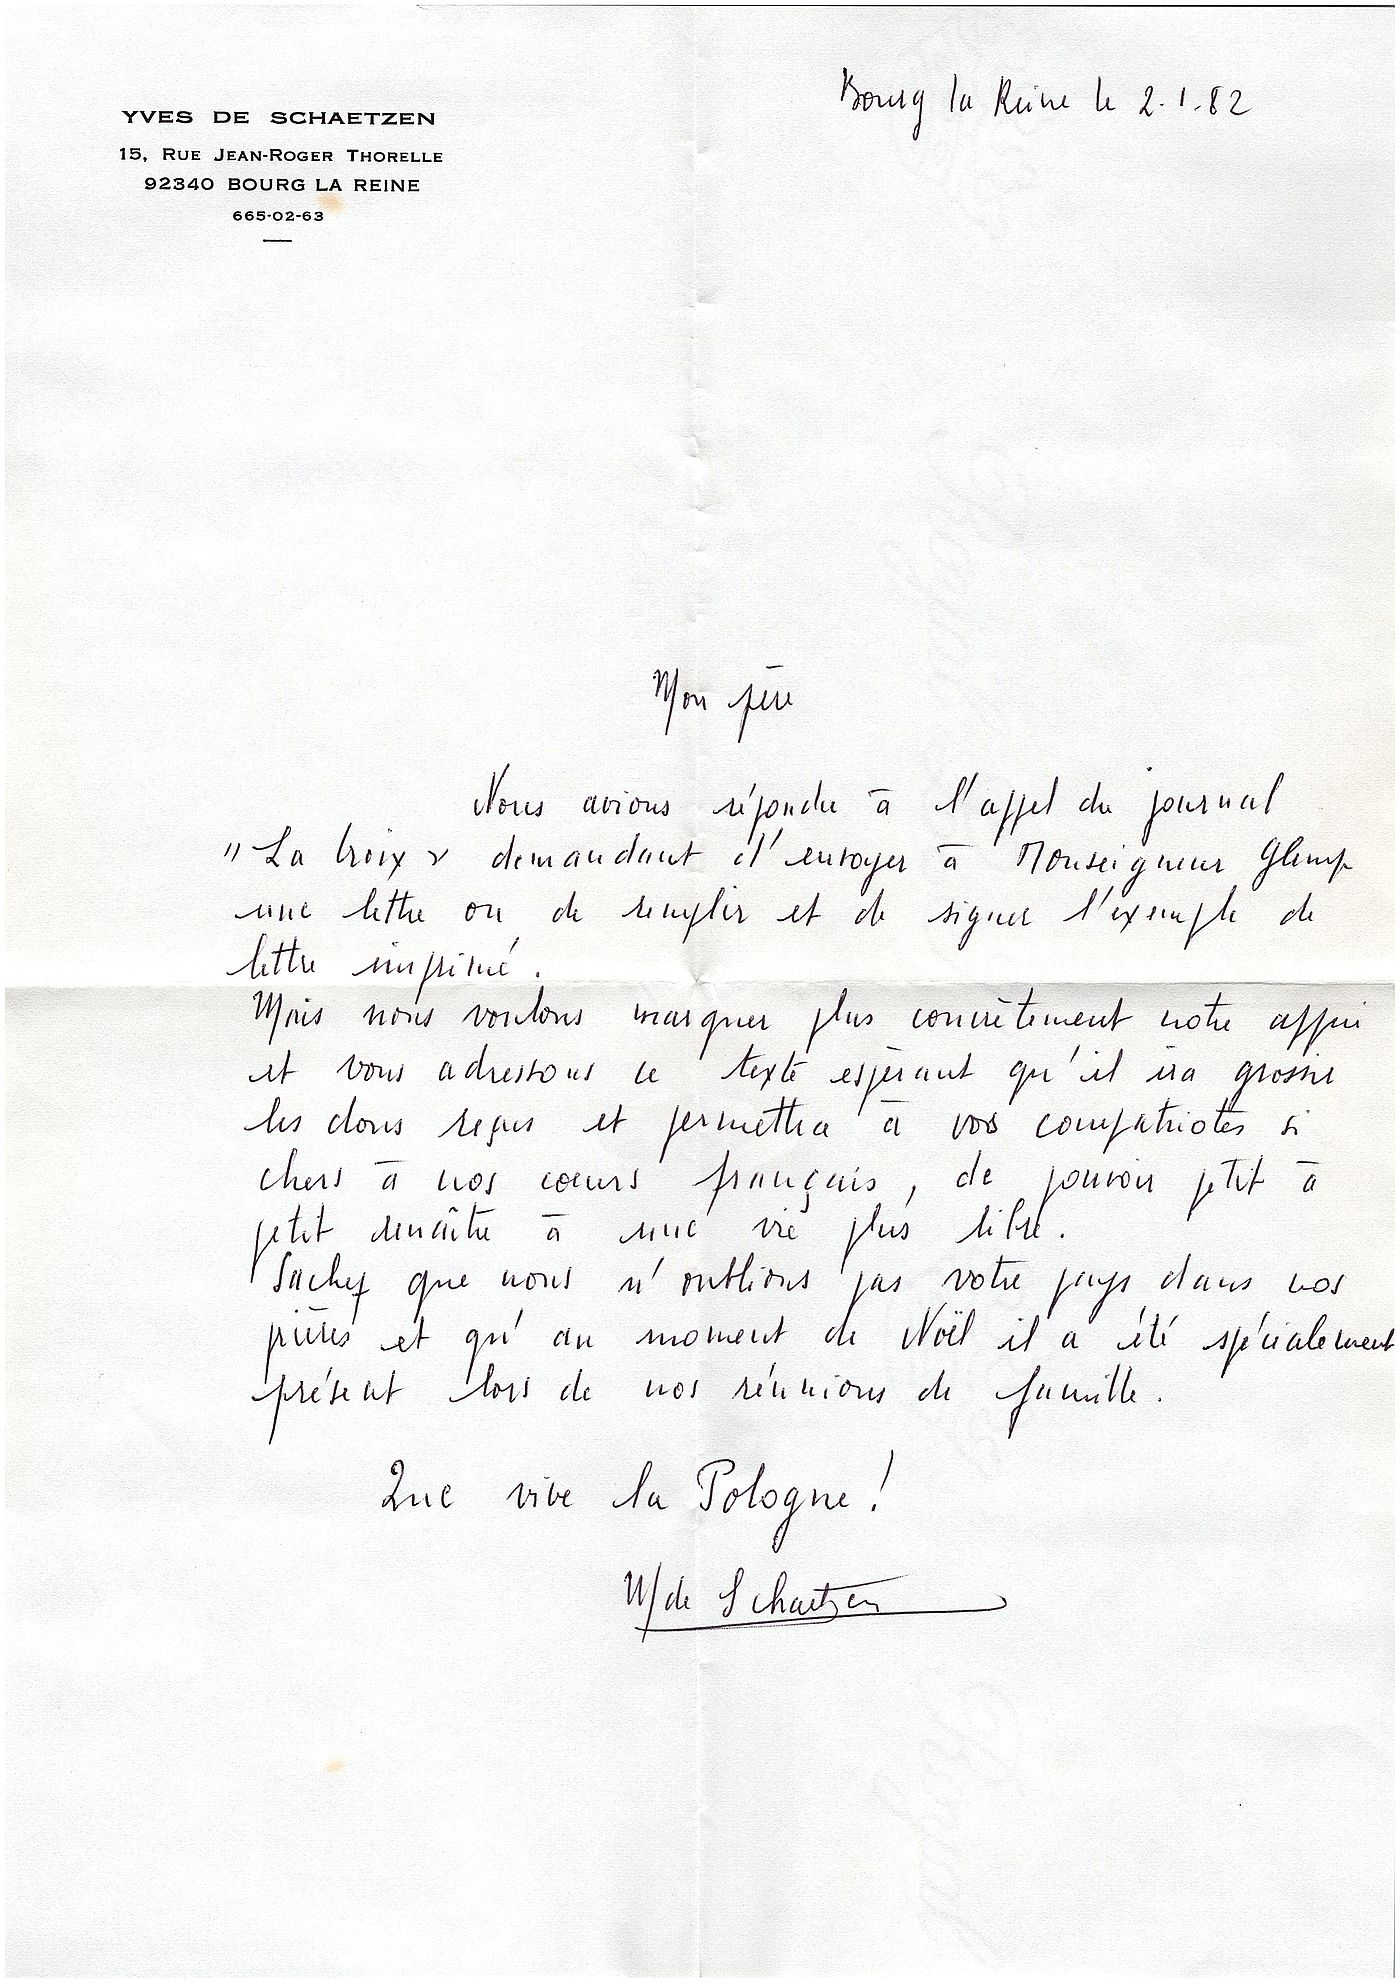 YVES DE SCHAETZEN
15, RUE JEAN-ROGER THORELLE
92340 BOURG LA REINE
665-02-63
Bourg la Reine le 2.1.82
Mon père
Nous avions répondu à l'appel du journal
"La Croix" demandant d'envoyer à Monseigneur Glemp
une lettre ou de remplir et de signer l'exemple de
lettre imprimé.
Mais nous voulons marquer plus concrètement notre appui
et vous adressons ce texte espérant qu'il ira grossir
les dons reçus et permettra à vos compatriotes si
chers à nos coeurs français, de pouvoir petit à
petit renaître à une vie plus libre.
Sachez que nous n'oublions pas votre pays dans nos
prières et qu'au moment de Noël il a été spécialement
présent lors de nos réunions de famille.
Que vive la Pologne !
M de Schaetzen